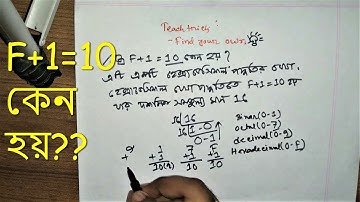 F+1=10
কেন
হয়??
Teach tricks:
- Find your own
F+1=10 কেন হয়?
এটি একটি হেক্সাডেসিমাল পদ্ধতির যোগ,
হেক্সাডেসিমাল যোগ পদ্ধতিতে F+1=10 হয়
যার দশমিক সংখ্যার মান 16
16|16
16|1-0
0-1
Binar(0-1)
octal(0-7)
decimal(0-9)
Hexadecimal(0-F)
9 1 7 F
+ +1 +1 +1
10 10 10